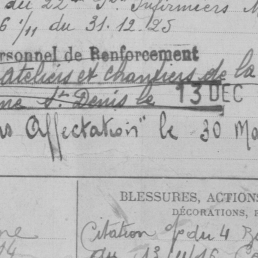 du 22e Infirmiers M
6 1/11 du 31.12.25
ersonnel de Renforcement
Ateliers et chantiers de la
ne St Denis le 13 DEC
ns Affectation" le 30 Ma
BLESSURES, ACTIONS
DÉCORATIONS,
Citation du 4
14 du 13/4/16